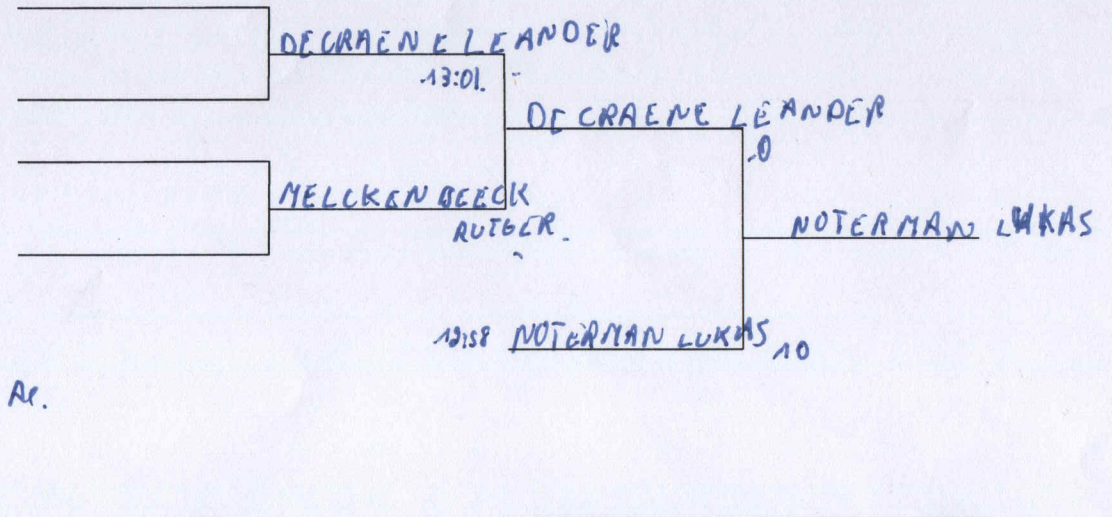 DECRAENE LEANDER
13:01.
DECRAENE LEANDER
0
MELCKENBEECK
RUTGER.
NOTERMAN LUKAS
12:58 NOTERMAN LUKAS 10